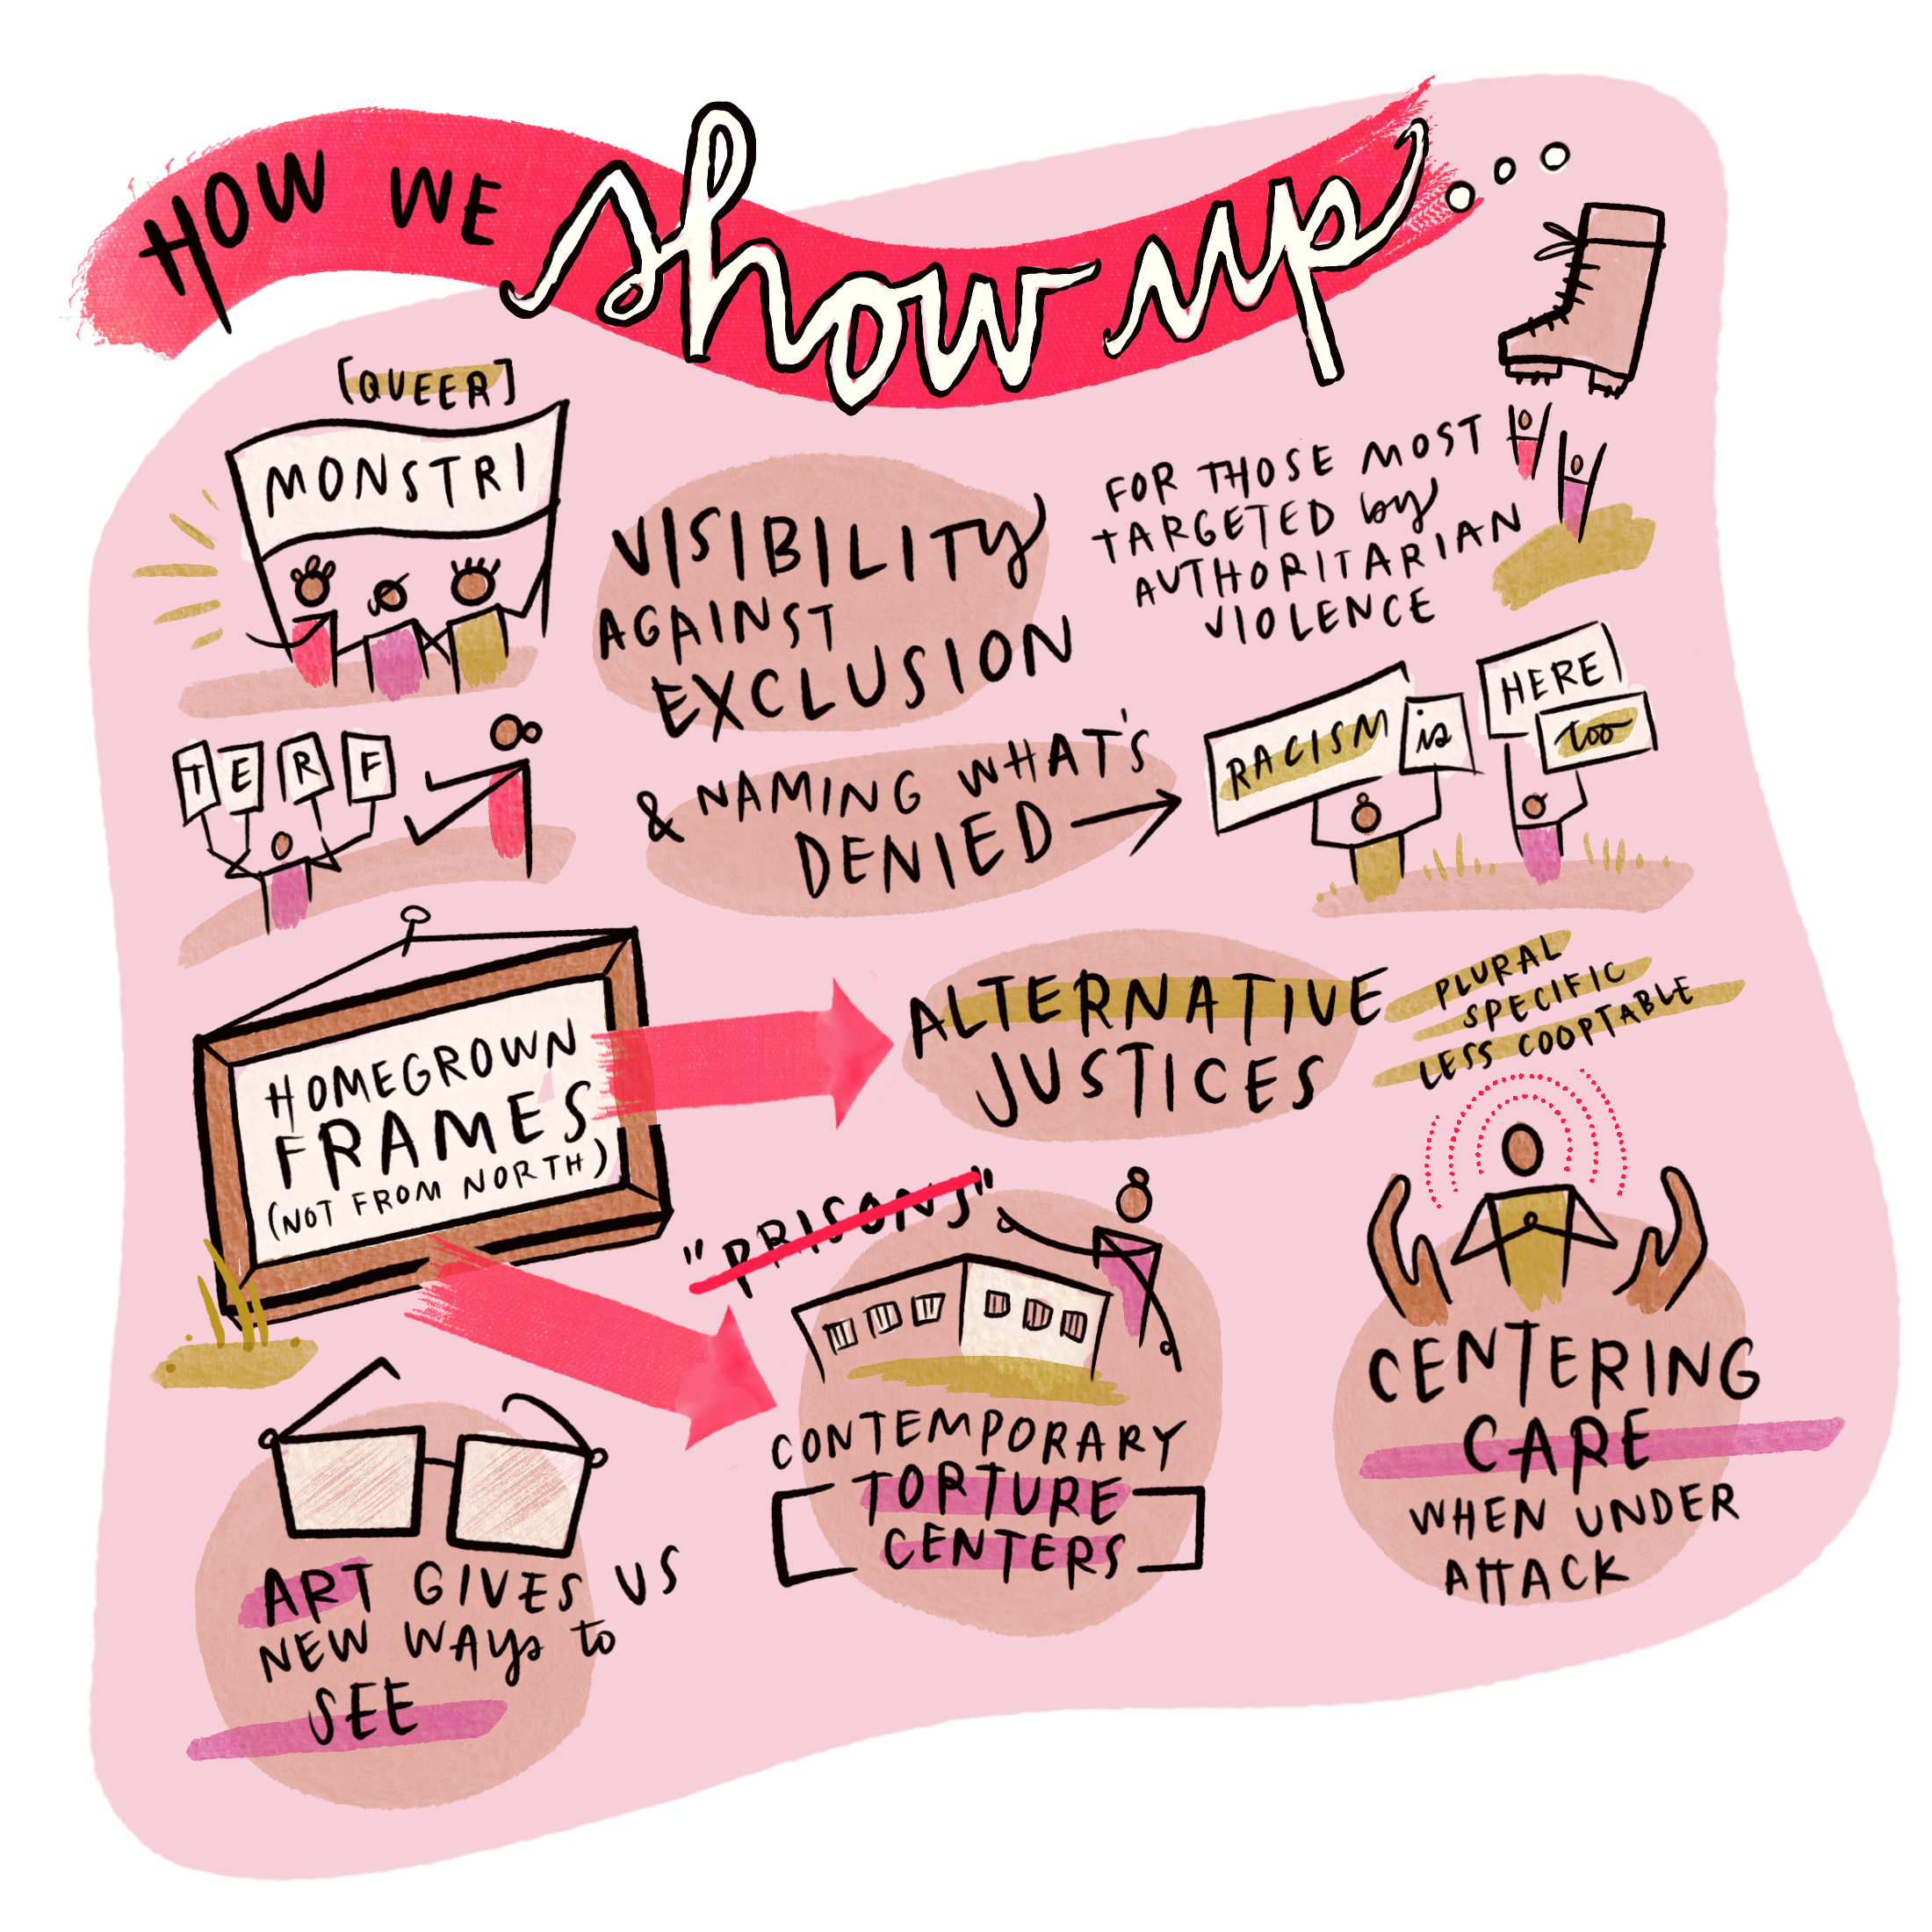 HOW WE show up...
[QUEER]
MONSTRI
VISIBILITY
AGAINST
EXCLUSION
FOR THOSE MOST
TARGETED by
AUTHORITARIAN
VIOLENCE
T E R F
& NAMING WHAT'S
DENIED
RACISM is
HERE
too
HOMEGROWN
FRAMES
(NOT FROM NORTH)
ALTERNATIVE
JUSTICES
PLURAL
SPECIFIC
LESS COOPTABLE
"PRISONS"
CONTEMPORARY
TORTURE
CENTERS
CENTERING
CARE
WHEN UNDER
ATTACK
ART GIVES US
NEW WAYS to
SEE